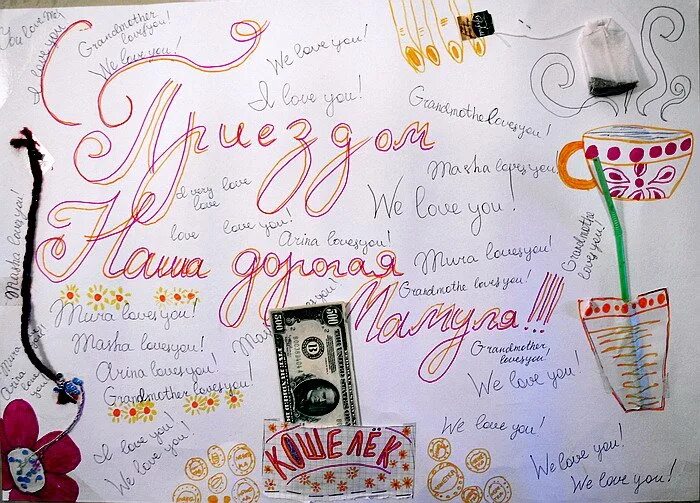 You love me!
Grandmother
loves you!
We love you!
I love you
We love you!
I love you!
Grandmothe loves you!
Приездом
Masha loves you!
I very love
love
We love you!
love love you!
Arina loves you!
Grandmothe
loves you!
Masha loves you!
Наша дорогая
Mura loves you!
Grandmothe loves you!
Мамуля!!!!
Mura loves you!
500
Masha loves you!
Grandmother
loves you!
B
Arina loves you!
We love you!
Grandmother loves you!
КОШЕЛЁК
I love you!
We love you!
We love you!
We love you!
We love you!